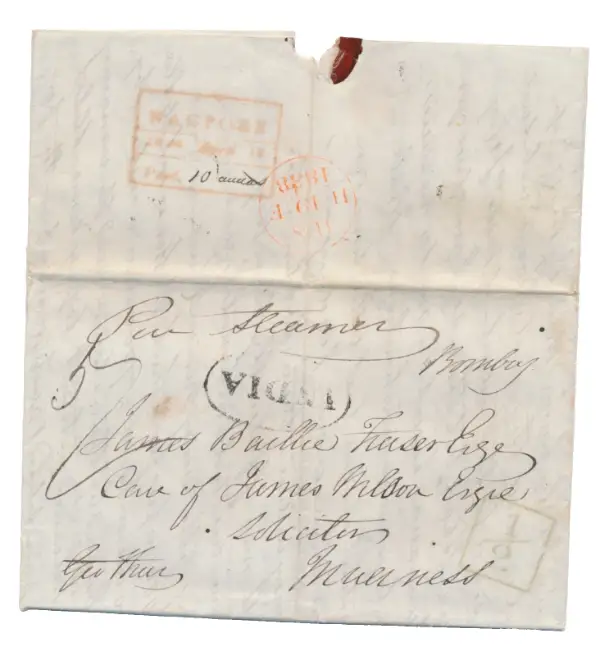 NAGPORE
Paid 10 annas
1838
Per Steamer
Bombay
5
INDIA
James Baillie Fraser Esqe
Care of James Wilson Esqre
Solicitor
Inverness
½